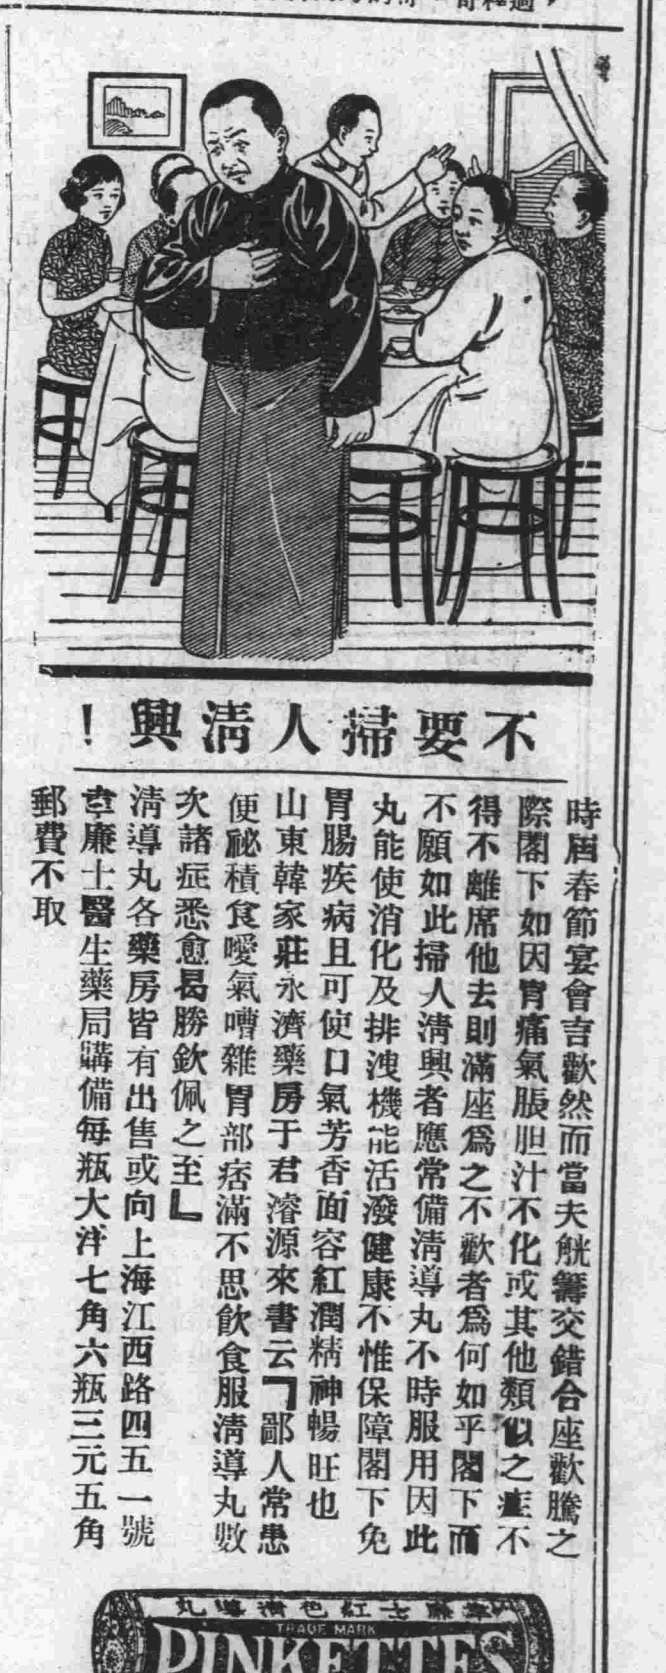 不要掃人清興！
時屆春節宴會言歡然而當夫觥籌交錯合座歡騰之
際閣下如因胃痛氣脹胆汁不化或其他類似之症不
得不離席他去則滿座爲之不歡者爲何如乎閣下而
不願如此掃人清興者應常備清導丸不時服用因此
丸能使消化及排洩機能活潑健康不惟保障閣下免
胃腸疾病且可使口氣芳香面容紅潤精神暢旺也
山東韓家莊永濟藥房于君濬源來書云「鄙人常患
便祕積食噯氣嘈雜胃部痞滿不思飲食服清導丸數
次諸症悉愈曷勝欽佩之至」
清導丸各藥房皆有出售或向上海江西路四五一號
韋廉士醫生藥局購備每瓶大洋七角六瓶三元五角
郵費不取
韋廉士紅色清導丸
TRADE MARK
PINKETTES